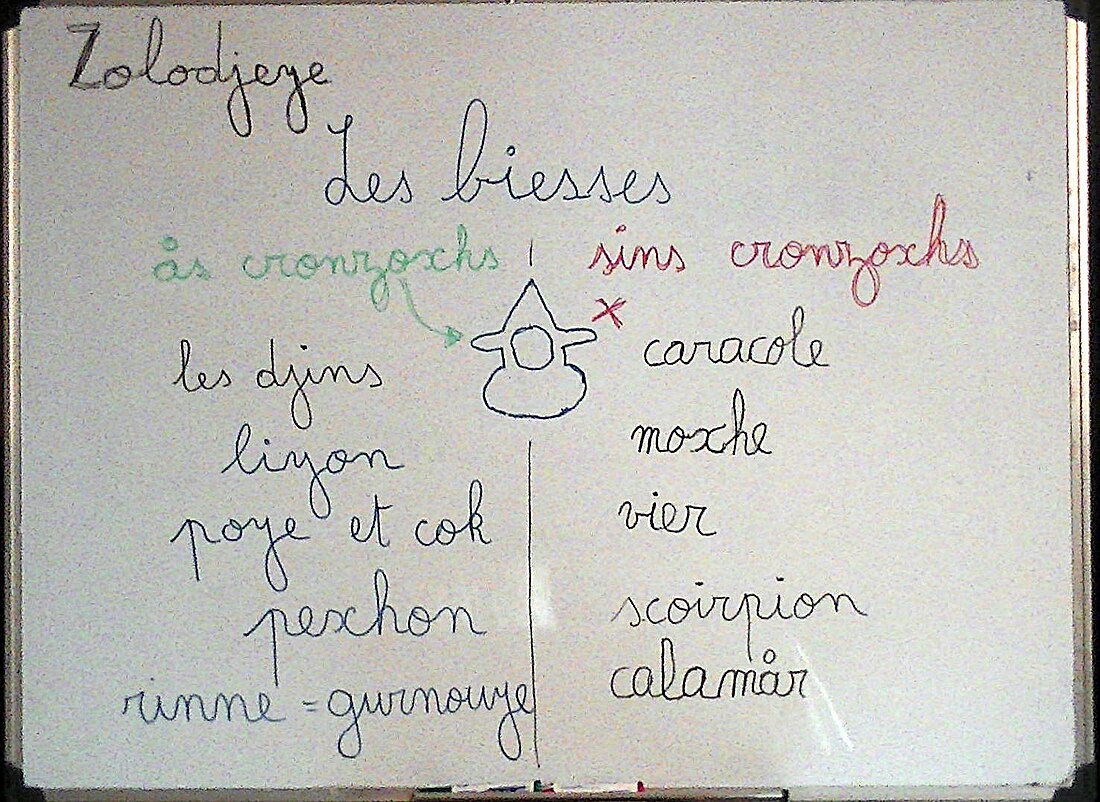 Zolodjeye
Les biesses
ås cronzoxhs
les djins
liyon
poye et cok
pexhon
rinne = gurnouye
sins cronzoxhs
x
caracole
moxhe
vier
scoirpion
calamår